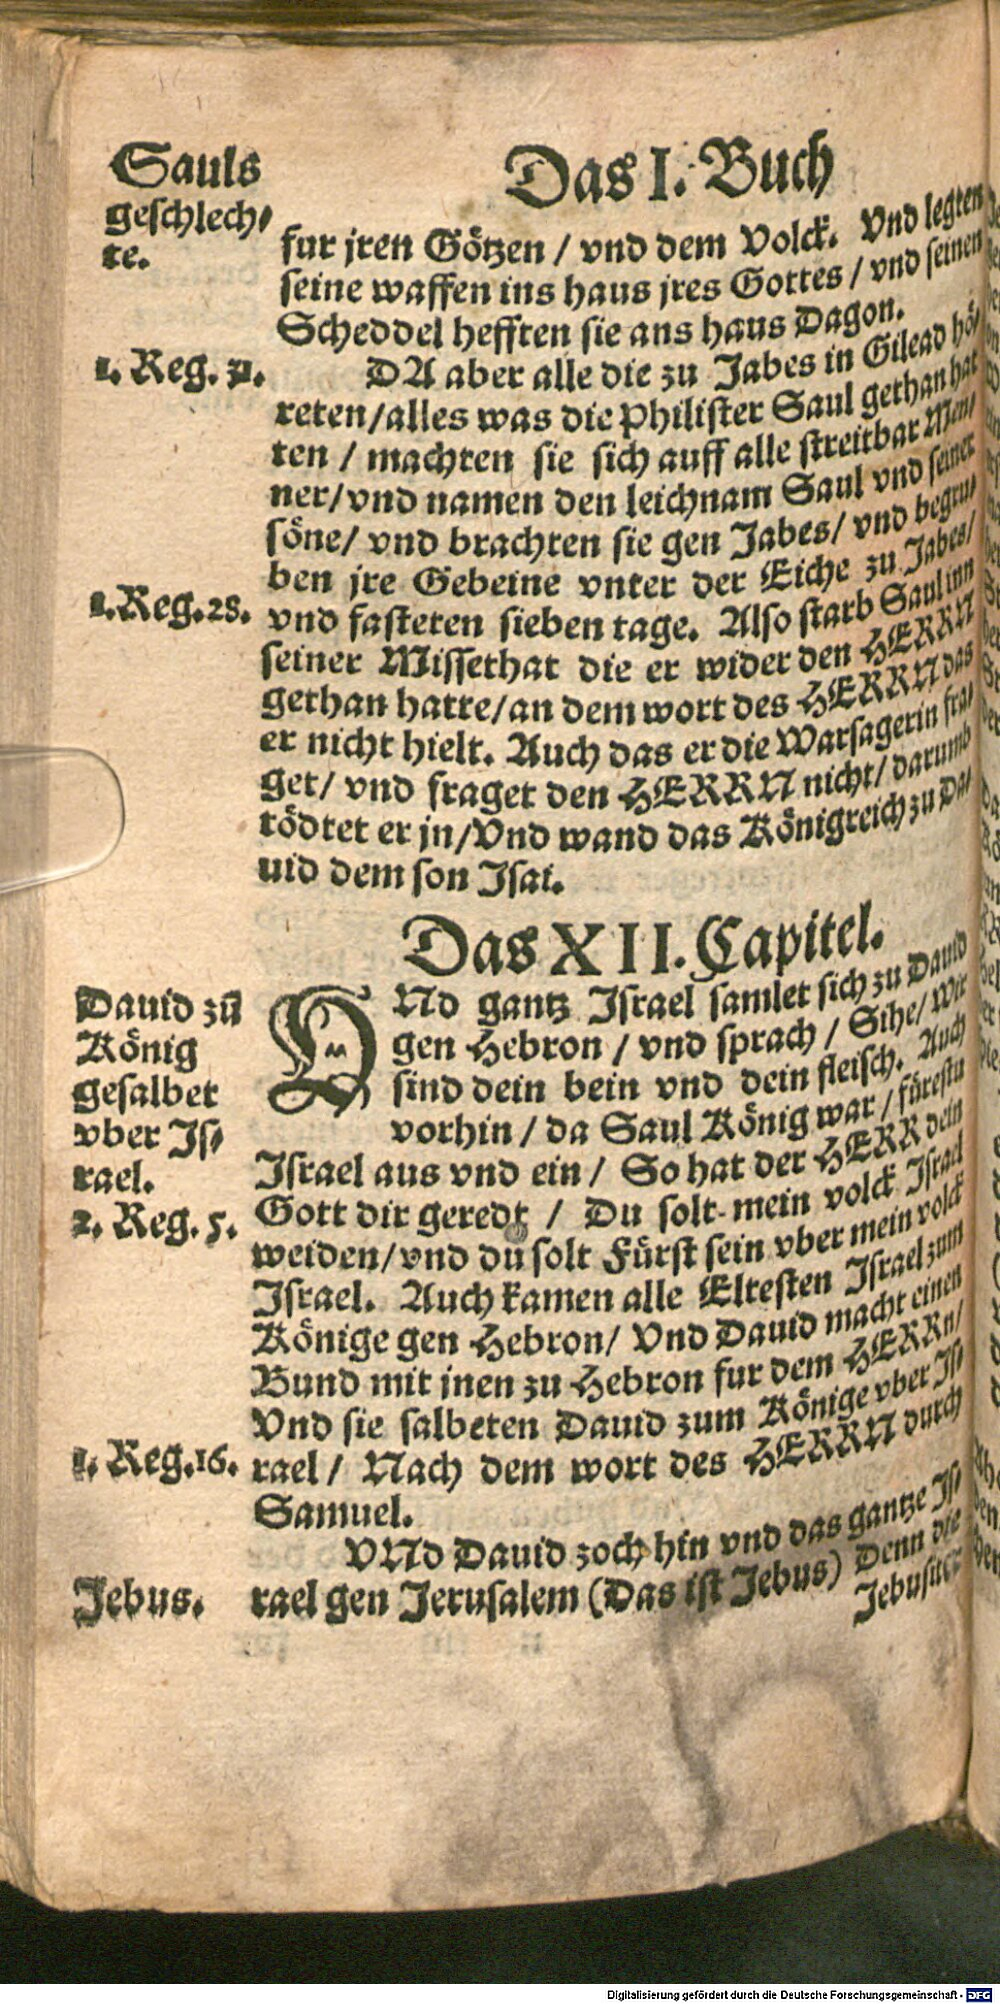 Das I. Buch
Sauls
geschlech⸗
te.
fur jren Götzen / vnd dem Volck. Vnd legten
seine waffen ins haus jres Gottes / vnd seinen
Scheddel hefften sie ans haus Dagon.
1. Reg. 31.
DA aber alle die zu Jabes in Gilead hö⸗
reten/alles was die Philister Saul gethan hat
ten / machten sie sich auff alle streitbar Men⸗
ner/vnd namen den leichnam Saul vnd seiner
söne/ vnd brachten sie gen Jabes/ vnd begru⸗
ben jre Gebeine vnter der Eiche zu Jabes/
1. Reg. 28.
vnd fasteten sieben tage. Also starb Saul inn
seiner Missethat die er wider den HERRN
gethan hatte/an dem wort des HERRN das
er nicht hielt. Auch das er die Warsagerin fra⸗
get/ vnd fraget den HERRN nicht/ darumb
tödtet er jn/Vnd wand das Königreich zu Da⸗
uid dem son Isai.
Das XII. Capitel.
Dauid zū
König
gesalbet
vber Js⸗
rael.
2. Reg. 5.
VNd gantz Israel samlet sich zu Dauid
gen Hebron / vnd sprach / Sihe/ Wir
sind dein bein vnd dein fleisch. Auch
vorhin / da Saul König war / fürestu
Israel aus vnd ein / So hat der HERR dein
Gott dir geredt / Du solt mein volck Israel
weiden/vnd du solt Fürst sein vber mein volck
Israel. Auch kamen alle Eltesten Israel zum
Könige gen Hebron/ Vnd Dauid macht einen
Bund mit jnen zu Hebron fur dem HERRn/
Vnd sie salbeten Dauid zum Könige vber Js⸗
1. Reg.16.
rael / Nach dem wort des HERRN durch
Samuel.
VNd Dauid zoch hin vnd das gantze Js⸗
Jebus.
rael gen Jerusalem (Das ist Jebus) Denn die
Jebusiter
Digitalisierung gefördert durch die Deutsche Forschungsgemeinschaft - DFG